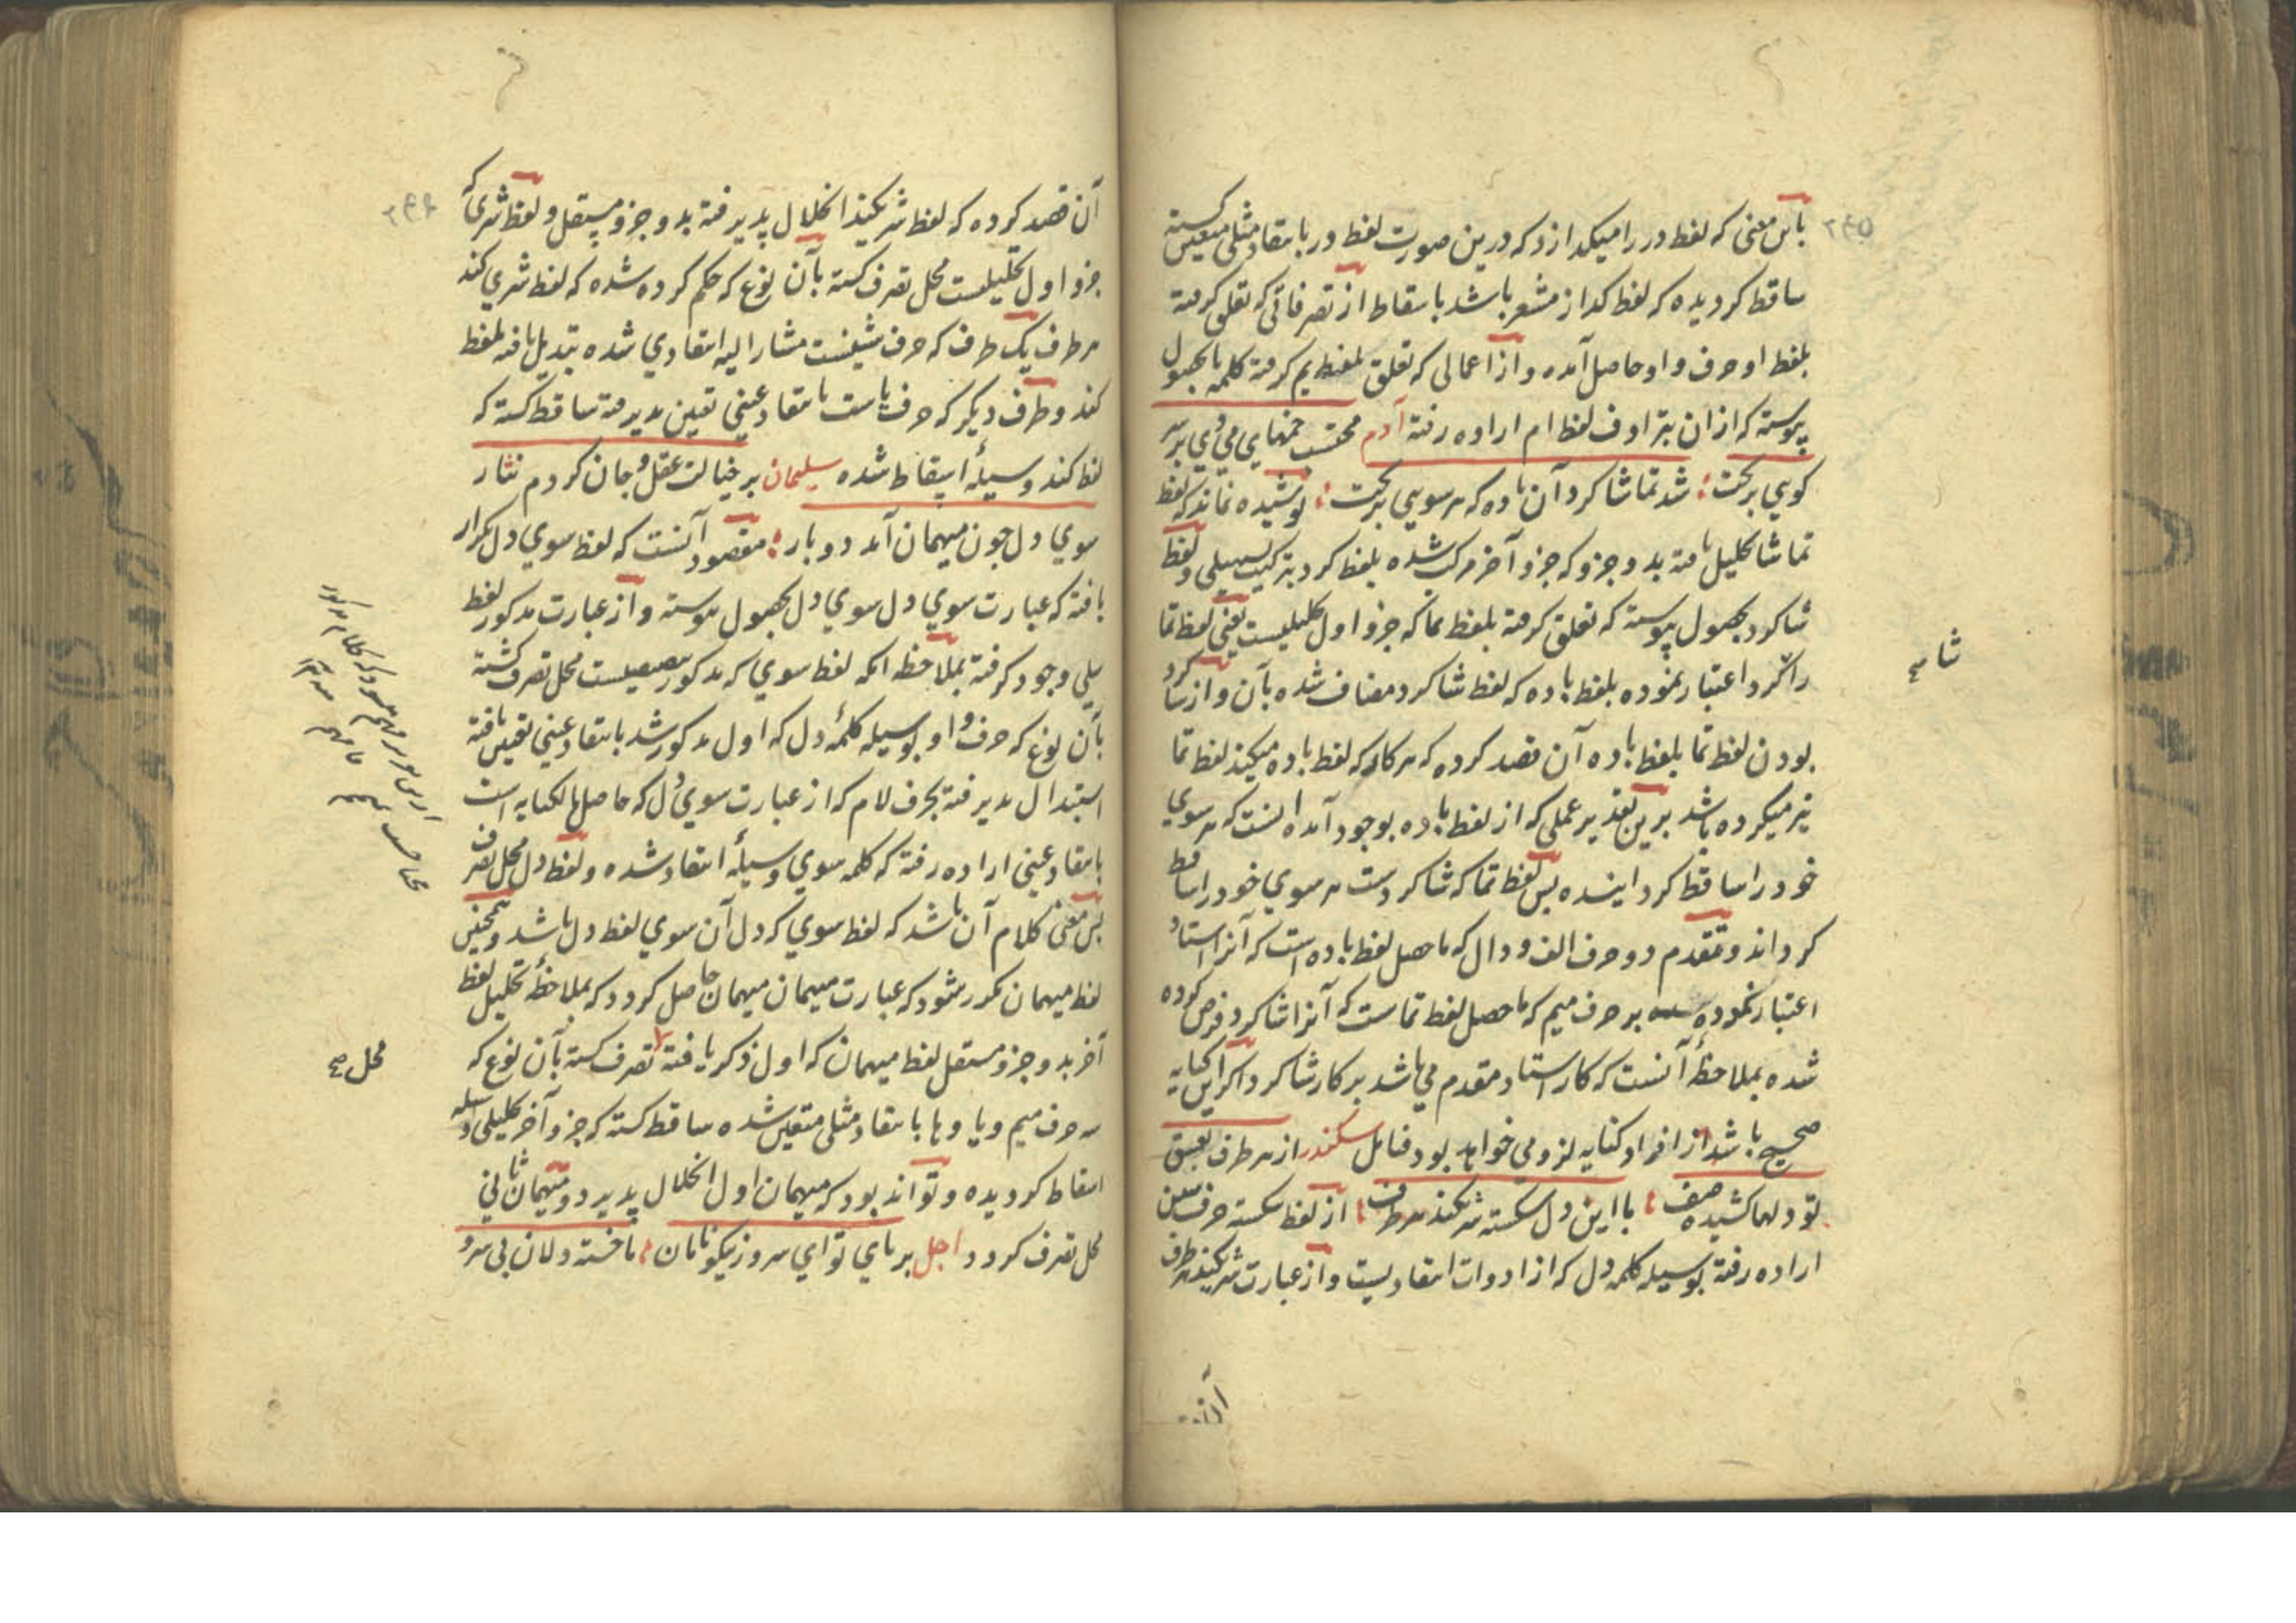 ۲۴۵
باین معنی که لفظ در را میگدازد که درین صورت لفظ در بانتقاد مثلی متعین گشته
ساقط گردیده که لفظ گداز مشعر باشد باسقاط از تصرفاتی که تعلق گرفته
بلفظ او حرف واو حاصل آمده و از اعمالی که تعلق بلفظ یم گرفته کلمه ما بحصول
پیوسته که از ان بترادف لفظ ام اراده رفته آدم محتسب خمهای می در هر
کویی بریخت شد تماشا کرد آن باده که هر سویی بریخت پوشیده نماند که لفظ
تماشا تحلیل یافته بدو جزو که جزو آخر مرکب شده بلفظ کرد بترکیب سبیلی و لفظ
شاکرد بحصول پیوسته که تعلق گرفته بلفظ تما که جزو اول تحلیلیست یعنی لفظ تما
را شاکرد اعتبار نموده بلفظ باده که لفظ شاکرد مضاف شده بآن و از شاکرد
بودن لفظ تما بلفظ باده آن قصد کرده که هر کار که لفظ باده میکند لفظ تما
نیز میکرده باشد برین تقدیر عملی که از لفظ باده بوجود آمده اینست که هر سوی
خود را ساقط گردانیده پس لفظ تما که شاکردست هر سوی خود را ساقط
گرداند و تقدم دو حرف الف و دال که ماحصل لفظ باده است که آنرا استاد
اعتبار نموده شده بر حرف میم که ماحصل لفظ تماست که آنرا شاکرد فرض کرده
شده بملاحظهٔ آنست که کار استاد مقدم می باشد بر کار شاکرد اگر این کنایه
صحیح باشد از افراد کنایه لزومی خواهد بود فتامل سکندر از هر طرف بعشق
تو دلها کشیده صف با این دل شکسته شر یکند هر طرف از لفظ شکسته حرف شین
اراده رفته بوسیله کلمه دل که از ادوات انتقادیست و از عبارت شریکند هر طرف
شا صح
۲۴۶
آن قصد کرده که لفظ شریکند انحلال پذیرفته بدو جزو مستقل و لفظ شری که
جزو اول تحلیلیست محل تصرف گشته بآن نوع که حکم کرده شده که لفظ شری کند
هر طرف یک طرف که حرف شینست مشار الیه انتقادی شده تبدیل یافته بلفظ
کند و طرف دیگر که حرف یاست بانتقاد عینی تعین پذیرفته ساقط گشته که
لفظ کند وسیلهٔ اسقاط شده سلیمان بر خیالت عقل و جان کردم نثار
سوی دل چون میهمان آمد دو بار مقصود آنست که لفظ سوی دل تکرار
یافته که عبارت سوی دل سوی دل بحصول پیوسته و از عبارت مذکور لفظ
سلی وجود گرفته بملاحظه آنکه لفظ سوی که مذکور تنصیصیست محل تصرف گشته
بآن نوع که حرف واو بوسیله کلمهٔ دل که اول مذکور شد بانتقاد عینی تعین یافته
استبدال پذیرفته بحرف لام که از عبارت سوی دل که حاصل بالکنایه است
بانتقاد عینی اراده رفته که کلمه سوی وسیلهٔ انتقاد شده و لفظ دل محل تصرف
پس معنی کلام آن باشد که لفظ سوی که دل آن سوی لفظ دل باشد و همچنین
لفظ میهمان مکرر شود که عبارت میهمان میهمان حاصل گردد که بملاحظهٔ تحلیل لفظ
آخر بدو جزو مستقل لفظ میهمان که اول ذکر یافته تصرف گشته بآن نوع که
سه حرف میم و یا و ها بانتقاد مثلی متعین شده ساقط گشته که جزو آخر تحلیلی وسیله
اسقاط گردیده و تواند بود که میهمان اول انحلال پذیرد و میهمان ثانی
محل تصرف گردد اجل بر پای تو ای سرو زنیکو نامان ما خسته دلان بی سر و
محل صح